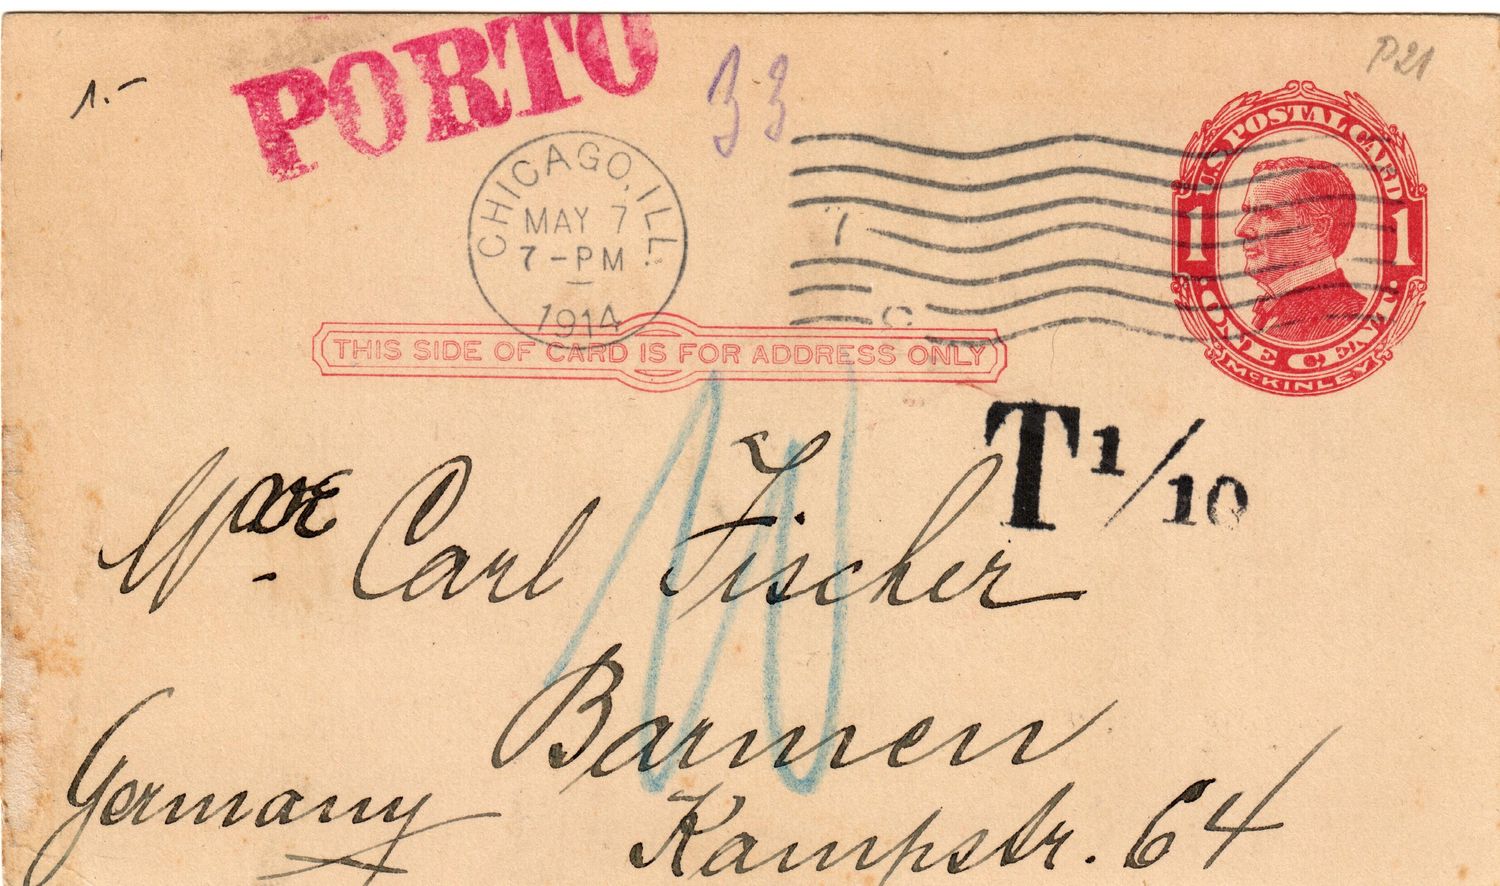 PORTO
1.-
33
P21
CHICAGO, ILL.
MAY 7
7-PM
1914
U.S. POSTAL CARD
1 1
ONE CENT
McKINLEY
THIS SIDE OF CARD IS FOR ADDRESS ONLY
T 1/10
10
Carl Fischer
Barmen
Germany
Kampstr. 64